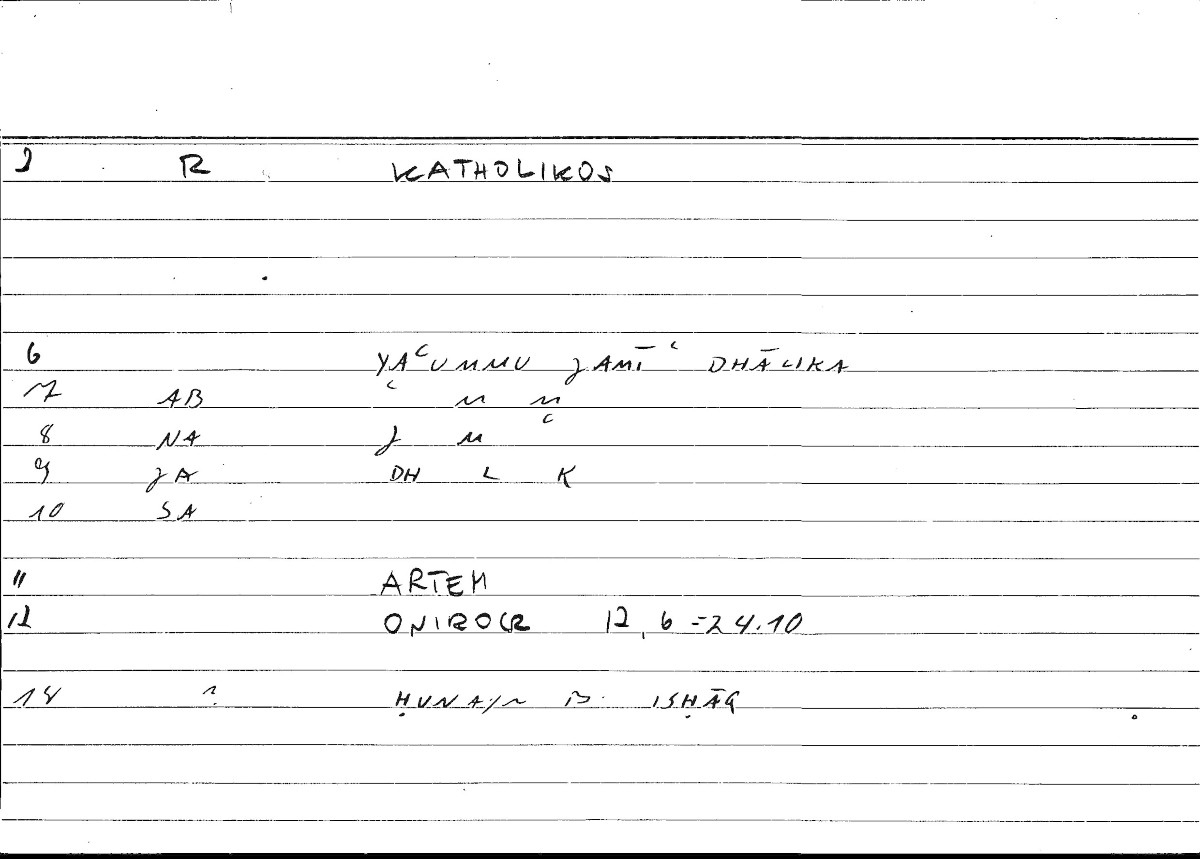 2 R KATHOLIKOS
6 YAʿUMMU JAMĪʿ DHĀLIKA
7 AB ʿ M M
8 NA J M ʿ
9 JA DH L K
10 SA
11 ARTEM
12 ONIROCR 12, 6 = 24.10
18 ? ḤUNAYN B. ISḤĀQ